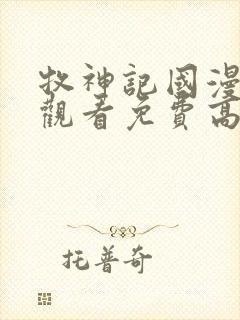 牧神記國漫
觀看免費高
托普奇